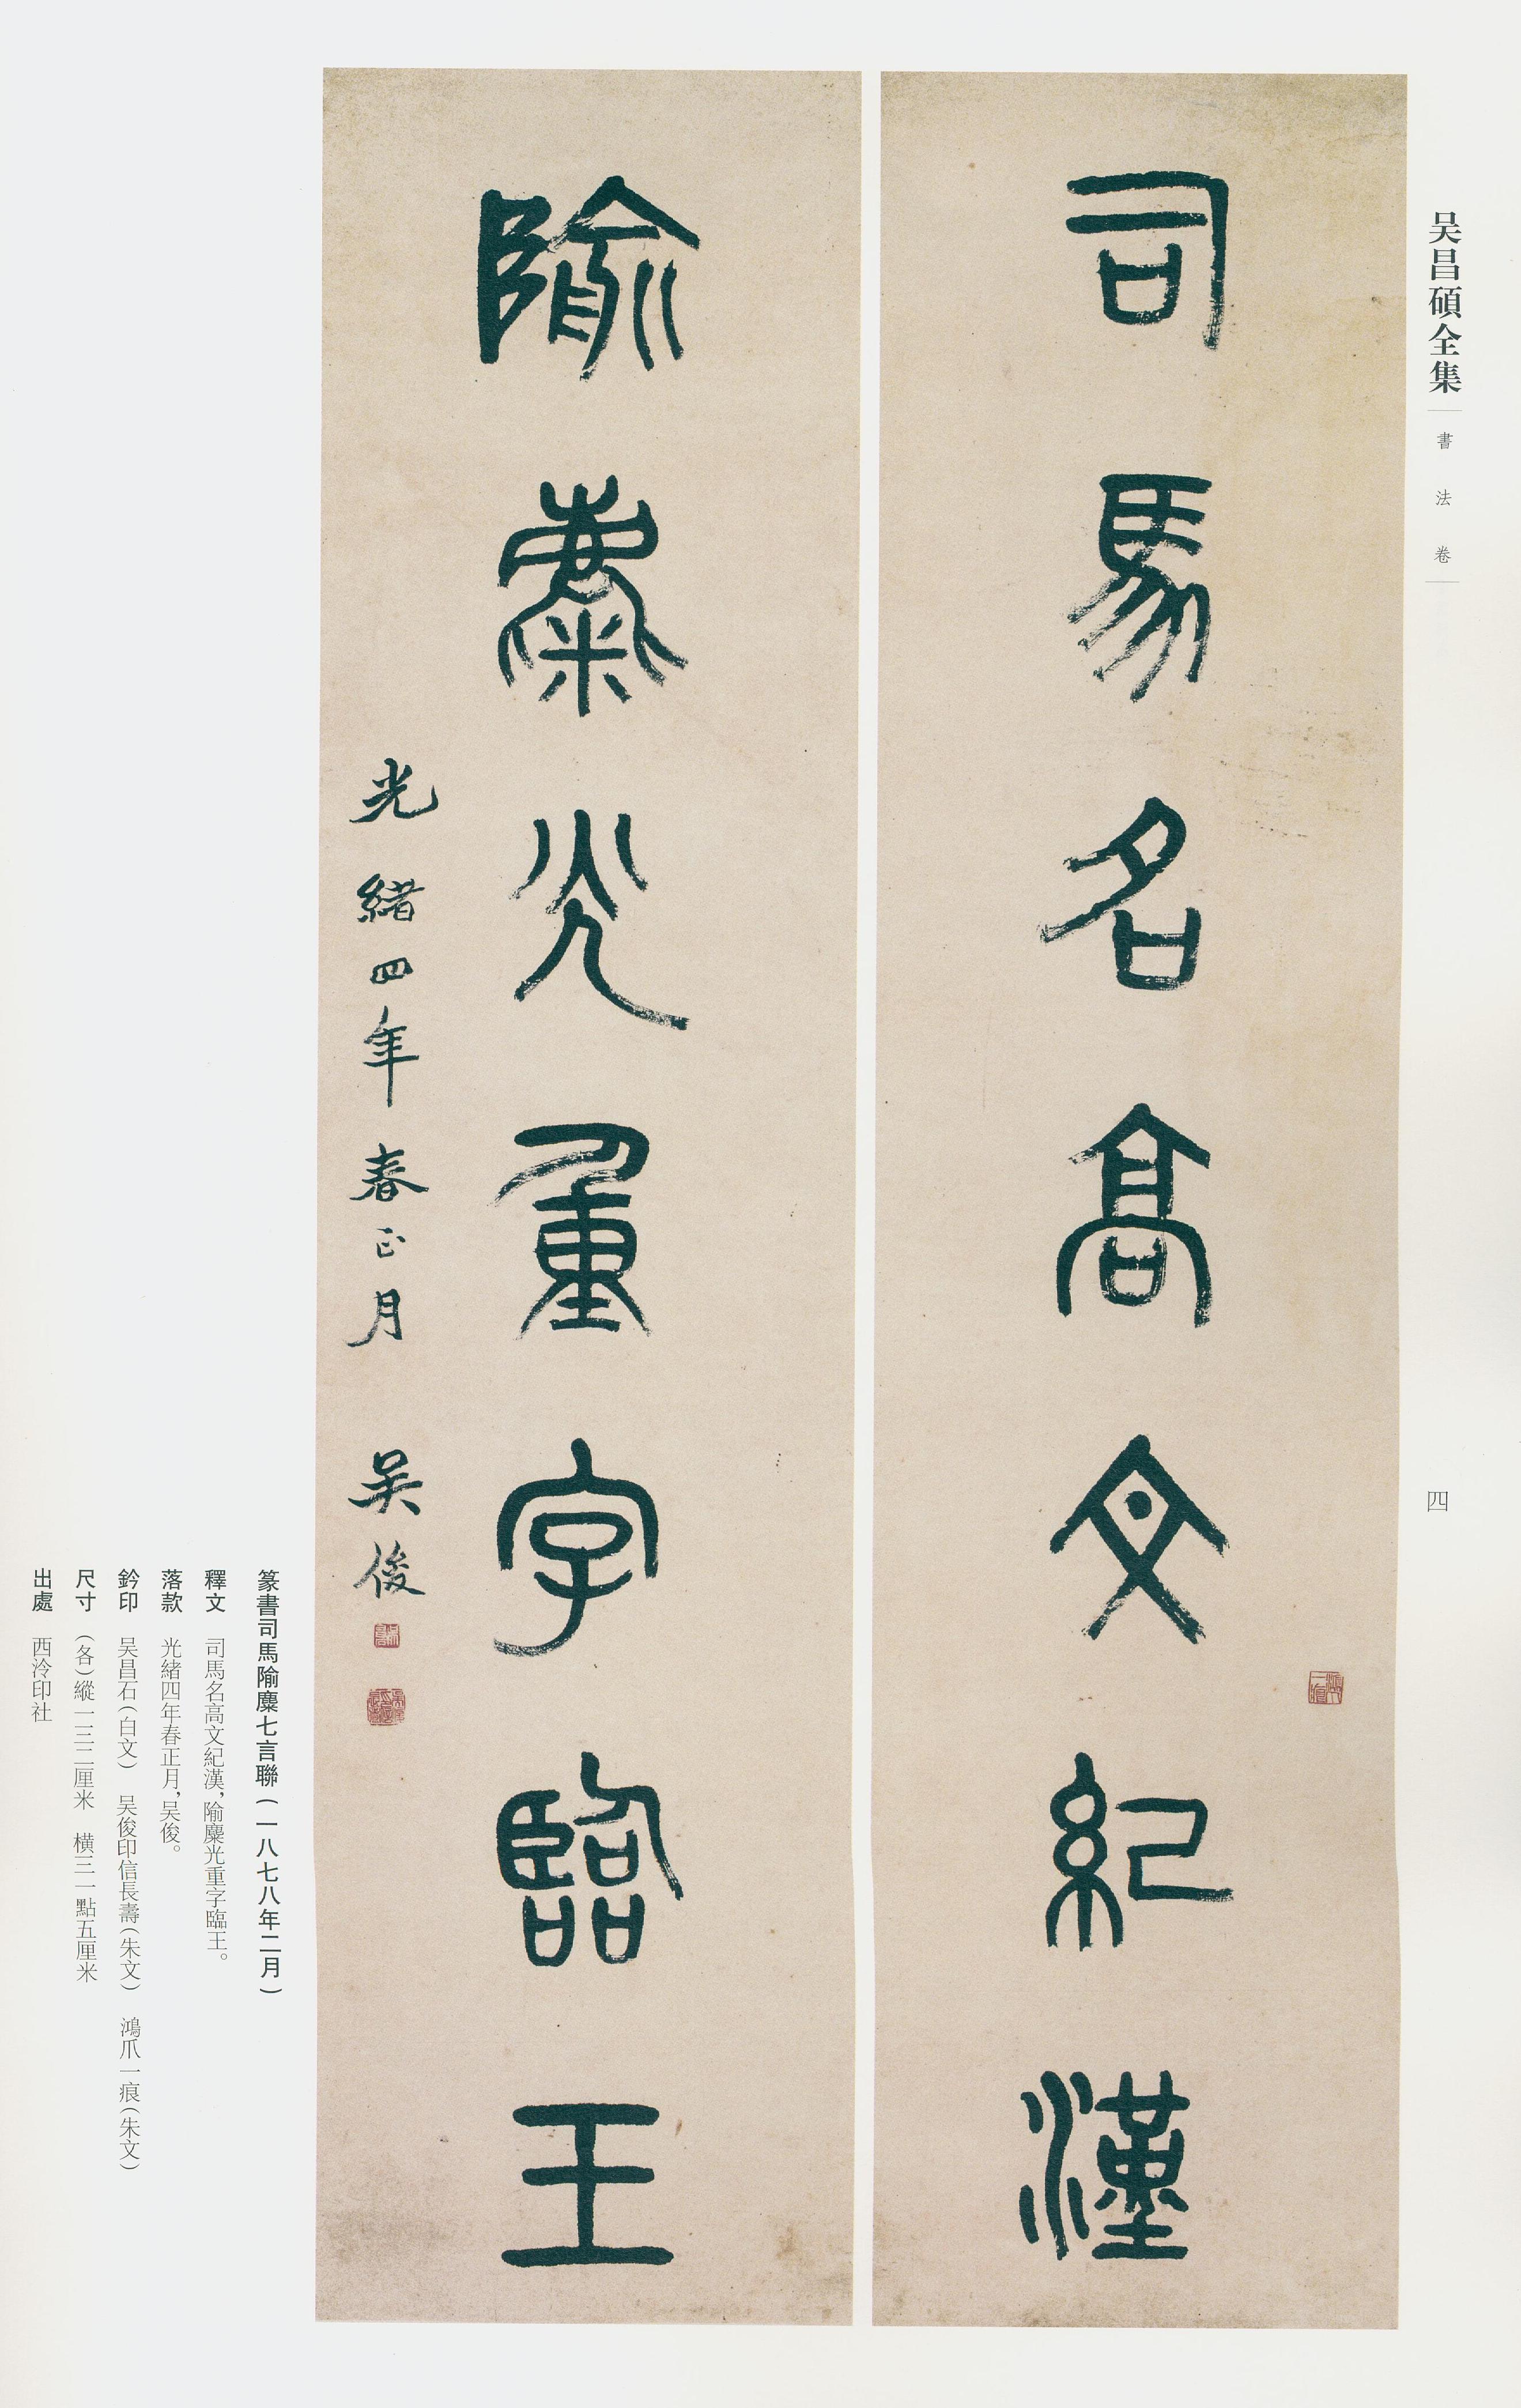 吴昌碩全集
書法卷
四
司馬名高文紀漢
隃麋光重字臨王
光緒四年春正月 吴俊
篆書司馬隃麋七言聯(一八七八年二月)
釋文 司馬名高文紀漢,隃麋光重字臨王。
落款 光緒四年春正月,吴俊。
鈐印 吴昌石(白文) 吴俊印信長壽(朱文) 鴻爪一痕(朱文)
尺寸 (各)縱一三二厘米 橫三一點五厘米
出處 西泠印社